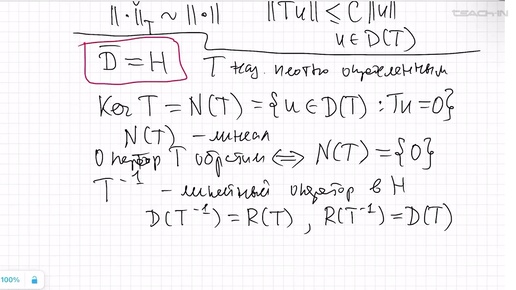 ‖·‖_T ~ ‖·‖   ‖Tu‖ ≤ C‖u‖
u ∈ D(T)
D̅ = H   T наз. плотно определенным
Ker T = N(T) = {u ∈ D(T) : Tu = 0}
N(T) – линеал
Оператор T обратим ⟺ N(T) = {0}
T⁻¹ – линейный оператор в H
D(T⁻¹) = R(T) , R(T⁻¹) = D(T)
TEACH-IN
100%